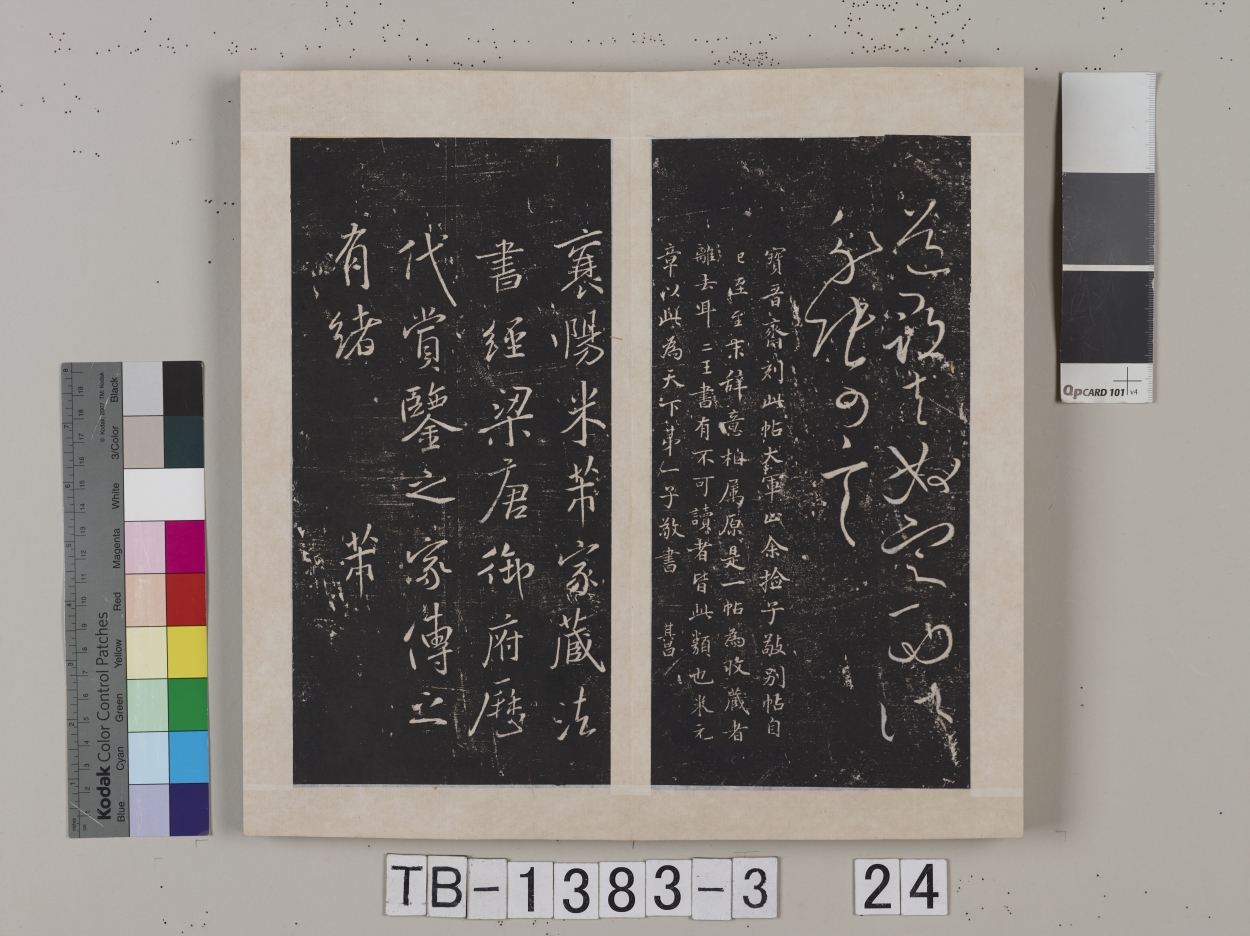 可言
寶晉齋刻此帖大軍止余撿子敬别帖自
已至至末辭意相属原是一帖為收藏者
離去耳二王書有不可讀者皆此類也米元
章以此為天下第一子敬書 其昌
襄陽米芾家藏法
書經梁唐御府歷
代賞鑒之家傳之
有緒 芾
TB-1383-3 24
QpCARD 101 v4
Kodak Color Control Patches
Blue Cyan Green Yellow Red Magenta White 3/Color Black